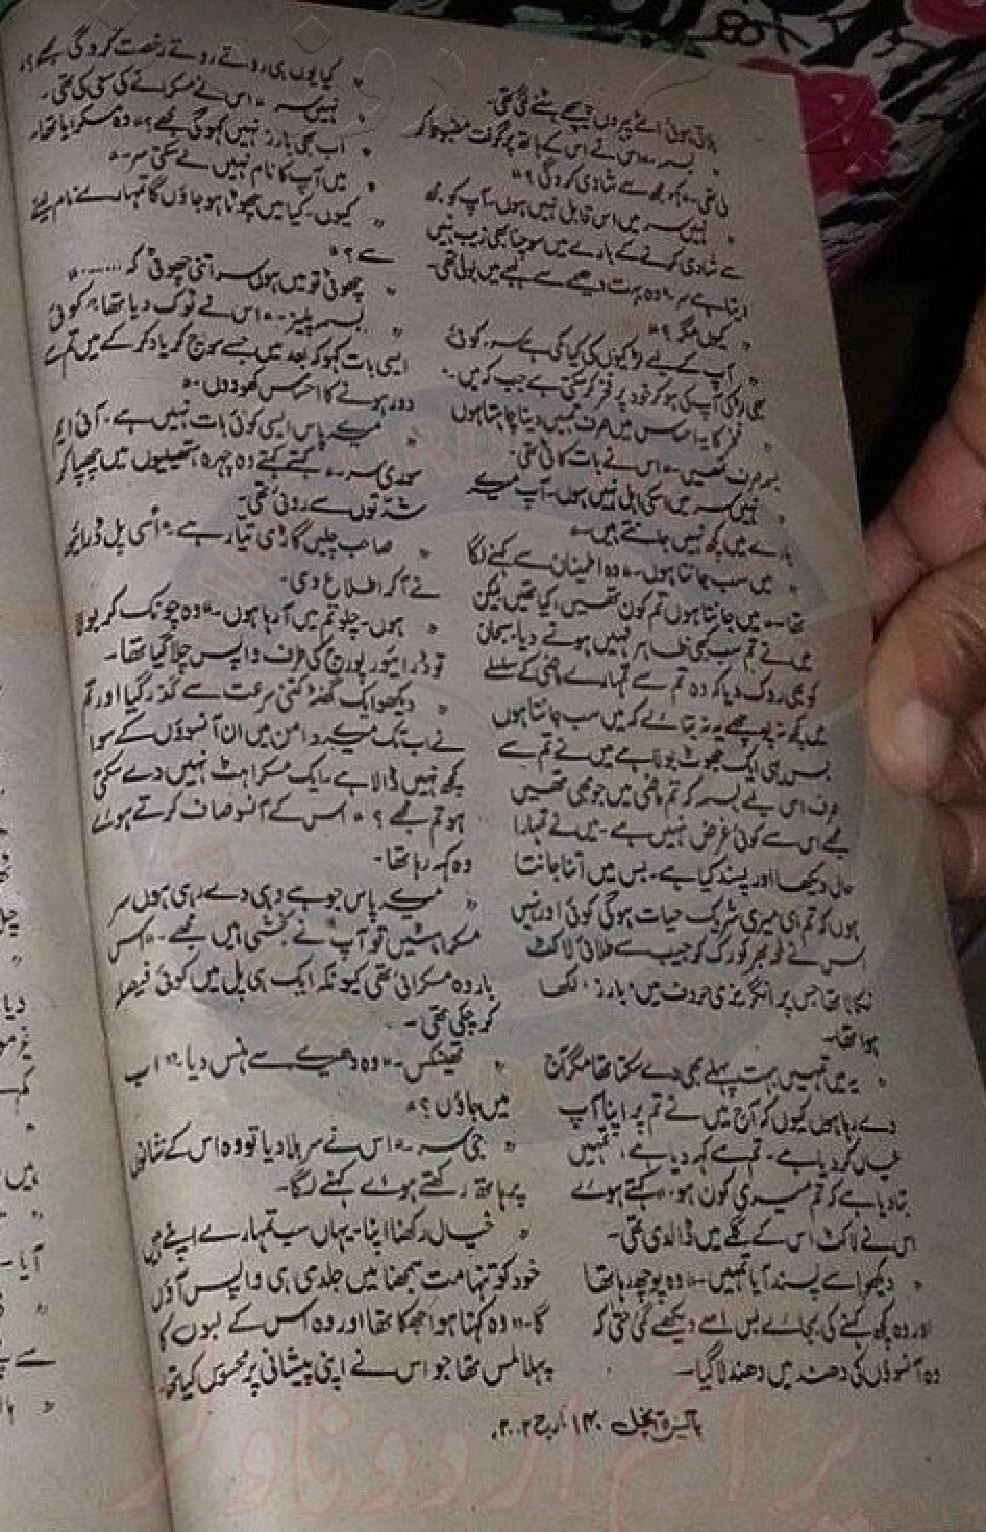 ہلاتی ہوئی الٹے پیروں پیچھے ہٹنے لگی تھی۔
" بسمہ۔" اس نے اس کے ہاتھ پر گرفت مضبوط کر
لی تھی۔ "کہو مجھ سے شادی کرو گی؟"
" نہیں سر میں اس قابل نہیں ہوں۔ آپ کو مجھ
سے شادی کرنے کے بارے میں سوچنا بھی زیب نہیں
دیتا ہے سر۔" وہ بہت دھیمے سے لہجے میں بولی تھی۔
" کیوں مگر؟"
" آپ کے لیے لڑکیوں کی کیا کمی ہے سر، کوئی
بھی لڑکی آپ کی ہو کر خود پر فخر کر سکتی ہے جب کہ میں۔"
" فخر کا یہ احساس میں صرف تمہیں دینا چاہتا ہوں
بسمہ صرف تمہیں۔" اس نے بات کاٹی تھی۔
" نہیں سر میں اس کی اہل نہیں ہوں۔ آپ میرے
بارے میں کچھ نہیں جانتے ہیں۔"
" میں سب جانتا ہوں۔" وہ اطمینان سے کہنے لگا
تھا۔ "میں جانتا ہوں تم کون تھیں، کیا تھیں لیکن
میں نے تم سب کبھی ظاہر نہیں ہونے دیا۔ سبحان
کو بھی روک دیا کہ وہ تم سے تمہارے ماضی کے سلسلے
میں کچھ نہ پوچھے یہ نہ بتائے کہ میں سب جانتا ہوں
بس یہی ایک جھوٹ بولا ہے میں نے تم سے
صرف اس لیے بسمہ کہ تم ماضی میں جو بھی تھیں
مجھے اس سے کوئی غرض نہیں ہے۔ میں نے تمہارا
حال دیکھا اور پسند کیا ہے۔ بس میں اتنا جانتا
ہوں کہ تم ہی میری شریک حیات ہو گی کوئی اور نہیں
اس نے لمحہ بھر کو رک کر جیب سے طلائی لاکٹ
نکالا تھا جس پر انگریزی حروف میں "بارز" لکھا
ہوا تھا۔
" یہ میں تمہیں بہت پہلے بھی دے سکتا تھا مگر آج
دے رہا ہوں کیوں کہ آج میں نے تم پر اپنا آپ
عیاں کر دیا ہے۔ تم سے کہہ دیا ہے، تمہیں
بتا دیا ہے کہ تم میری کون ہو۔" کہتے ہوئے
اس نے لاکٹ اس کے گلے میں ڈال دی تھی۔
" دیکھو اے پسند آیا تمہیں۔" وہ پوچھ رہا تھا
اور وہ کچھ کہنے کی بجائے بس اسے دیکھے گئی حتیٰ کہ
وہ آنسوؤں کی دھند میں دھندلا گیا۔
" کیا یوں ہی روتے روتے رخصت کرو گی مجھے؟"
" نہیں سر۔" اس نے مسکرانے کی سعی کی تھی۔
" اب بھی بارز نہیں کہو گی مجھے؟" وہ مسکرایا تھا۔
" میں آپ کا نام نہیں لے سکتی سر۔"
" کیوں۔ کیا میں چھوٹا ہو جاؤں گا تمہارے نام لینے
سے؟"
" چھوٹی تو میں ہوں سر اتنی چھوٹی کہ ......."
" بسمہ پلیز۔" اس نے ٹوک دیا تھا "کوئی
ایسی بات کہو کہ بعد میں جسے سوچ کر یاد کر کے میں تم سے
دور ہونے کا احساس کھو دوں۔"
" میرے پاس ایسی کوئی بات نہیں ہے۔ آئی ایم
سوری سر۔" کہتے کہتے وہ چہرہ ہتھیلیوں میں چھپا کر
شدتوں سے روئی تھی۔
" صاحب چلیں گاڑی تیار ہے۔" اسی پل ڈرائیور
نے آ کر اطلاع دی۔
" ہوں۔ چلو تم میں آ رہا ہوں۔" وہ چونک کر بولا
تو ڈرائیور پورچ کی طرف واپس چلا گیا تھا۔
" دیکھو ایک گھنٹہ کتنی سرعت سے گذر گیا اور تم
نے اب تک میرے دامن میں ان آنسوؤں کے سوا
کچھ نہیں ڈالا ہے۔ ایک مسکراہٹ نہیں دے سکتی
ہو تم مجھے؟" اس کے آنسو صاف کرتے ہوئے
وہ کہہ رہا تھا۔
" میرے پاس جو ہے وہی دے رہی ہوں سر
مسکراہٹیں تو آپ نے بخشی ہیں مجھے۔" اس
بار وہ مسکرائی تھی کیونکہ ایک ہی پل میں کوئی فیصلہ
کر چکی تھی۔
" تھینکس۔" وہ دھیرے سے ہنس دیا۔ "اب
میں جاؤں؟"
" جی سر۔" اس نے سر ہلا دیا تو وہ اس کے شانوں
پر ہاتھ رکھتے ہوئے کہنے لگا۔
" خیال رکھنا اپنا۔ یہاں سب تمہارے اپنے ہیں
خود کو تنہا مت سمجھنا میں جلدی ہی واپس آؤں
گا۔" وہ کہتا ہوا جھکا تھا اور وہ اس کے لبوں کا
پہلا لمس تھا جو اس نے اپنی پیشانی پر محسوس کیا تھا۔
پاکیزہ آنچل ۱۳۰ مارچ ۲۰۰۳ء